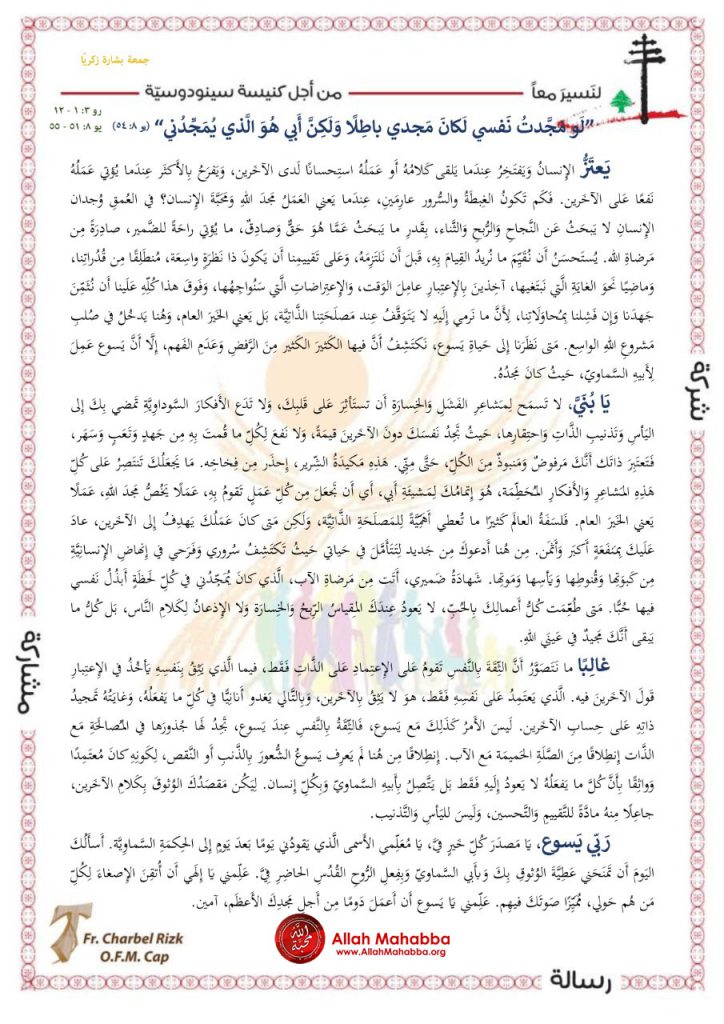 جمعة بشارة زكريّا
لنَسيرَ معاً
من أجل كنيسة سينودوسيّة
رو ٣: ١ - ١٢
يو ٨: ٥١ - ٥٥
”لَو مَجَّدتُ نَفسي لَكانَ مَجدي باطِلًا وَلَكِنَّ أَبي هُوَ الَّذي يُمَجِّدُني“ (يو ٨: ٥٤)
يَعتَزُّ الإِنسانُ وَيَفتَخِرُ عِندَما يَلقى كَلامُهُ أَو عَمَلُهُ استِحسانًا لَدى الآخَرين، وَيَفرَحُ بِالأَكثَر عِندَما يُؤتي عَمَلُهُ
نَفعًا عَلى الآخَرين. فَكَم تَكونُ الغِبطَةُ والسُّرور عارِمَين، عِندَما يَعني العَمَلُ مَجدَ اللهِ وَمَحَبَّةَ الإِنسان؟ في العُمقِ وُجدان
الإِنسانِ لا يَبحَثُ عَن النَّجاحِ وَالرُّبحِ وَالثَّناء، بِقَدرِ ما يَبحَثُ عَمَّا هُوَ حَقٌّ وَصادِقٌ، ما يُؤتي راحَةً للضَّمير، صادِرَةً مِن
مَرضاةِ الله. يُستَحسَنُ أَن نُقَيِّمَ ما نُريدُ القِيامَ بِهِ، قَبلَ أَن نَلتَزِمَهُ، وَعَلى تَقييمِنا أَن يَكونَ ذا نَظرَةٍ واسِعَة، مُنطَلِقًا مِن قُدُراتِنا،
وَماضِيًا نَحوَ الغايَةِ الَّتي نَبتَغيها، آخِذينَ بِالإِعتِبارِ عامِلَ الوَقت، وَالإِعتِراضاتِ الَّتي سَنُواجِهُها، وَفَوقَ هَذا كُلِّهِ عَلَينا أَن نُثَمِّنَ
جَهدَنا وَإِن فَشِلنا بِمُحاوَلاتِنا، لِأَنَّ ما نَرمي إِلَيهِ لا يَتَوَقَّفُ عِند مَصلَحَتِنا الذَّاتِيَّة، بَل يَعني الخَيرَ العام، وَهُنا يَدخُلُ في صُلبِ
مَشروعِ اللهِ الواسِع. مَتى نَظَرنا إِلى حَياةِ يَسوع، نَكتَشِفُ أَنَّ فيها الكَثيرَ الكَثير مِنَ الرَّفضِ وَعَدَمِ الفَهم، إِلَّا أَنَّ يَسوع عَمِلَ
لِأَبيهِ السَّماويّ، حَيثُ كانَ مَجدُهُ.
يَا بُنَيَّ، لا تَسمَح لِمَشاعِرِ الفَشَلِ وَالخِسارَةِ أَن تَستَأثِرَ عَلى قَلبِكَ، وَلا تَدَع الأَفكارَ السَّوداوِيَّةَ تَمضي بِكَ إِلى
اليَأسِ وَتَذنيبِ الذَّاتِ وَاحتِقارِها، حَيثُ تَجِدُ نَفسَكَ دونَ الآخَرينَ قيمَةً، وَلا نَفعَ لِكُلِّ ما قُمتَ بِهِ مِن جَهدٍ وَتَعَبٍ وَسَهَر،
فَتَعتَبِرَ ذاتَك أَنَّكَ مَرفوضٌ وَمَنبوذٌ مِنَ الكُلّ، حَتَّى مِنِّي. هَذِهِ مَكيدَةُ الشِّرّير، إِحذَر مِن فِخاخِهِ. ما يَجعَلُكَ تَنتَصِرُ عَلى كُلِّ
هَذِهِ المَشاعِرِ وَالأَفكارِ المُحَطِّمَة، هُوَ إِتمامُكَ لِمَشيئَةِ أَبي، أَي أَن تَجعَلَ مِن كُلِّ عَمَلٍ تَقومُ بِهِ، عَمَلًا يَخُصُّ مَجدَ اللهِ، عَمَلًا
يَعني الخَيرَ العام. فَلسَفَةُ العالَمِ كَثيرًا ما تُعطي أَهَمِّيَّةً لِلمَصلَحَةِ الذَّاتِيَّة، وَلَكِن مَتى كانَ عَمَلُكَ يَهدِفُ إِلى الآخَرين، عادَ
عَلَيكَ بِمَنفَعَةٍ أَكبَر وَأَثمَن. مِن هُنا أَدعوكَ مِن جَديد لِتَتَأَمَّلَ في حَياتي حَيثُ تَكتَشِفُ سُروري وَفَرَحي في إِنهاضِ الإِنسانِيَّةِ
مِن كَبوَتِها وَقُنوطِها وَيَأسِها وَمَوتِها. شَهادَةُ ضَميري، أَتَت مِن مَرضاةِ الآب، الَّذي كانَ يُمَجِّدُني في كُلِّ لَحظَةٍ أَبذُلُ نَفسي
فيها حُبًّا. مَتى طُعِّمَت كُلُّ أَعمالِكَ بِالحُبّ، لا يَعودُ عِندَكَ المِقياسُ الرِّبحُ وَالخِسارَة وَلا الإِذعانُ لِكَلامِ النَّاس، بَل كُلُّ ما
يَبقى أَنَّكَ مَجيدٌ في عَينَي اللهِ.
غالِبًا ما نَتَصَوَّرُ أَنَّ الثِّقَةَ بِالنَّفسِ تَقومُ عَلى الإِعتِمادِ عَلى الذَّاتِ فَقَط، فيما الَّذي يَثِقُ بِنَفسِهِ يَأخُذُ في الإِعتِبارِ
قَولَ الآخَرينَ فيه. الَّذي يَعتَمِدُ عَلى نَفسِهِ فَقَط، هو لا يَثِقُ بِالآخَرين، وَبِالتَّالي يَغدو أَنانِيًّا في كُلِّ ما يَفعَلُهُ، وَغايَتُهُ تَمجيدُ
ذاتِهِ عَلى حِسابِ الآخَرين. لَيسَ الأَمرُ كَذَلِكَ مَع يَسوع، فَالثِّقَةُ بِالنَّفسِ عِندَ يَسوع، تَجِدُ لَها جُذورَها في المُصالَحَةِ مَع
الذَّات إِنطِلاقًا مِنَ الصِّلَةِ الحَميمَة مَع الآب. إِنطِلاقًا مِن هُنا لَم يَعرِف يَسوعُ الشُّعورَ بِالذَّنبِ أَو النَّقص، لِكَونِهِ كانَ مُعتَمِدًا
وَواثِقًا بِأَنَّ كُلَّ ما يَفعَلُهُ لا يَعودُ إِلَيهِ فَقَط بَل يَتَّصِلُ بِأَبيهِ السَّماويّ وَبِكُلِّ إِنسان. لِيَكُن مَقصَدُكَ الوُثوقَ بِكَلامِ الآخَرين،
جاعِلًا مِنهُ مادَّةً للتَّقييمِ وَالتَّحسين، وَلَيسَ لليَأسِ وَالتَّذنيب.
رَبِّي يَسوع، يا مَصدَرَ كُلِّ خَيرٍ فِيَّ، يا مُعَلِّمي الأَسمى الَّذي يَقودُني يَومًا بَعدَ يَومٍ إِلى الحِكمَةِ السَّماوِيَّة. أَسأَلُكَ
اليَومَ أَن تَمنَحَني عَطِيَّةَ الوُثوقِ بِكَ وَبِأَبي السَّماويّ وَبِفِعلِ الرُّوحِ القُدُسِ الحاضِرِ فِيَّ. عَلِّمني يا إِلَهي أَن أُتقِنَ الإِصغاءَ لِكُلِّ
مَن هُم حَولي، مُمَيِّزًا صَوتَكَ فيهِم. عَلِّمني يا يَسوع أَن أَعمَلَ دَومًا مِن أَجلِ مَجدِكَ الأَعظَم، آمين.
شركة
مشاركة
رسالة
Fr. Charbel Rizk
O.F.M. Cap
الله محبة
Allah Mahabba
www.AllahMahabba.org